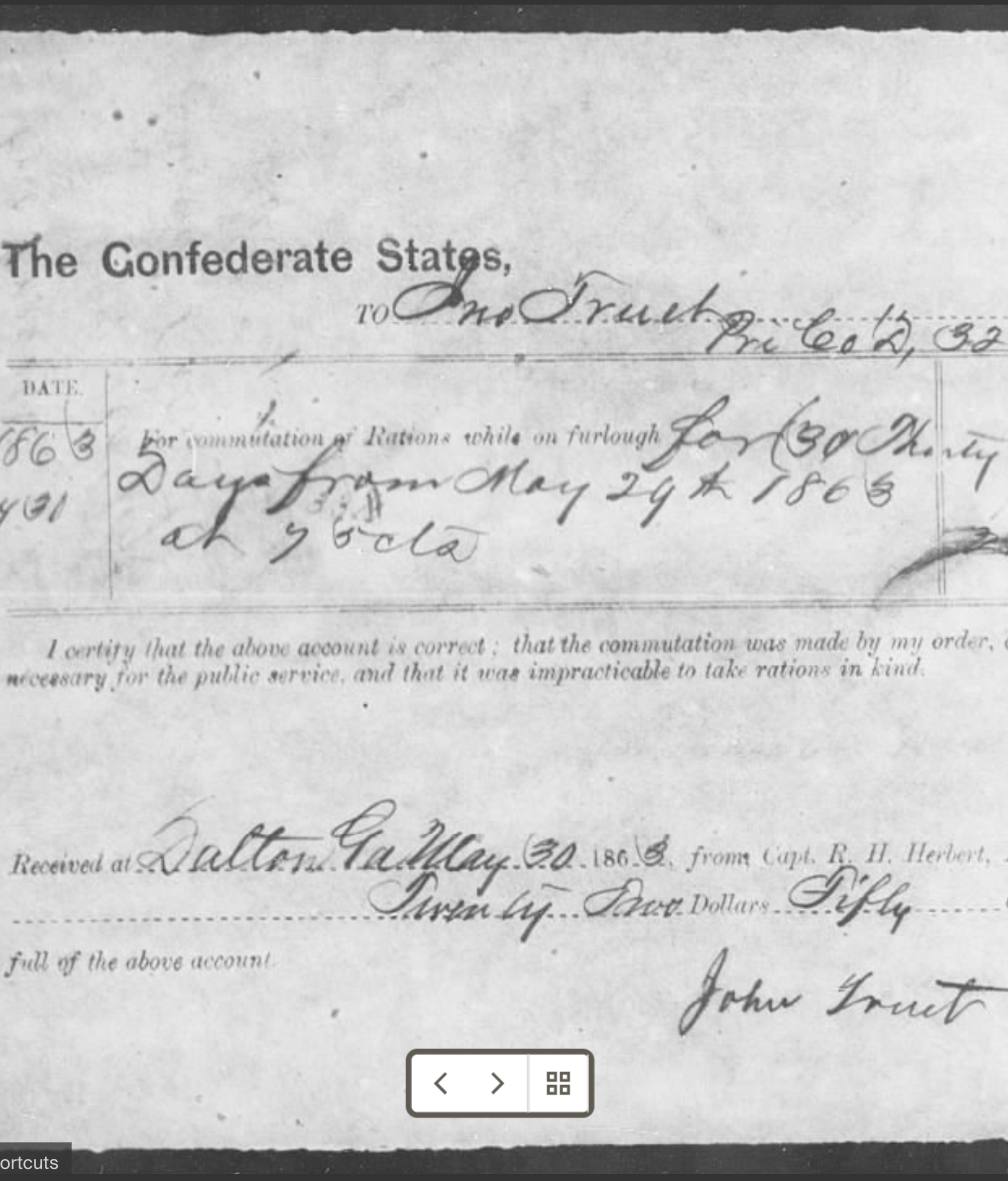 The Confederate States,
TO Jno Truet
Pri Co D, 32
DATE.
1863 For commutation of Rations while on furlough for (30 Thirty
Days from May 29th 1863
31 at 75 cts
I certify that the above account is correct; that the commutation was made by my order,
necessary for the public service, and that it was impracticable to take rations in kind.
Received at Dalton Ga May 30 1863, from Capt. R. H. Herbert,
Twenty Two Dollars Fifty
full of the above account.
John Truet
ortcuts